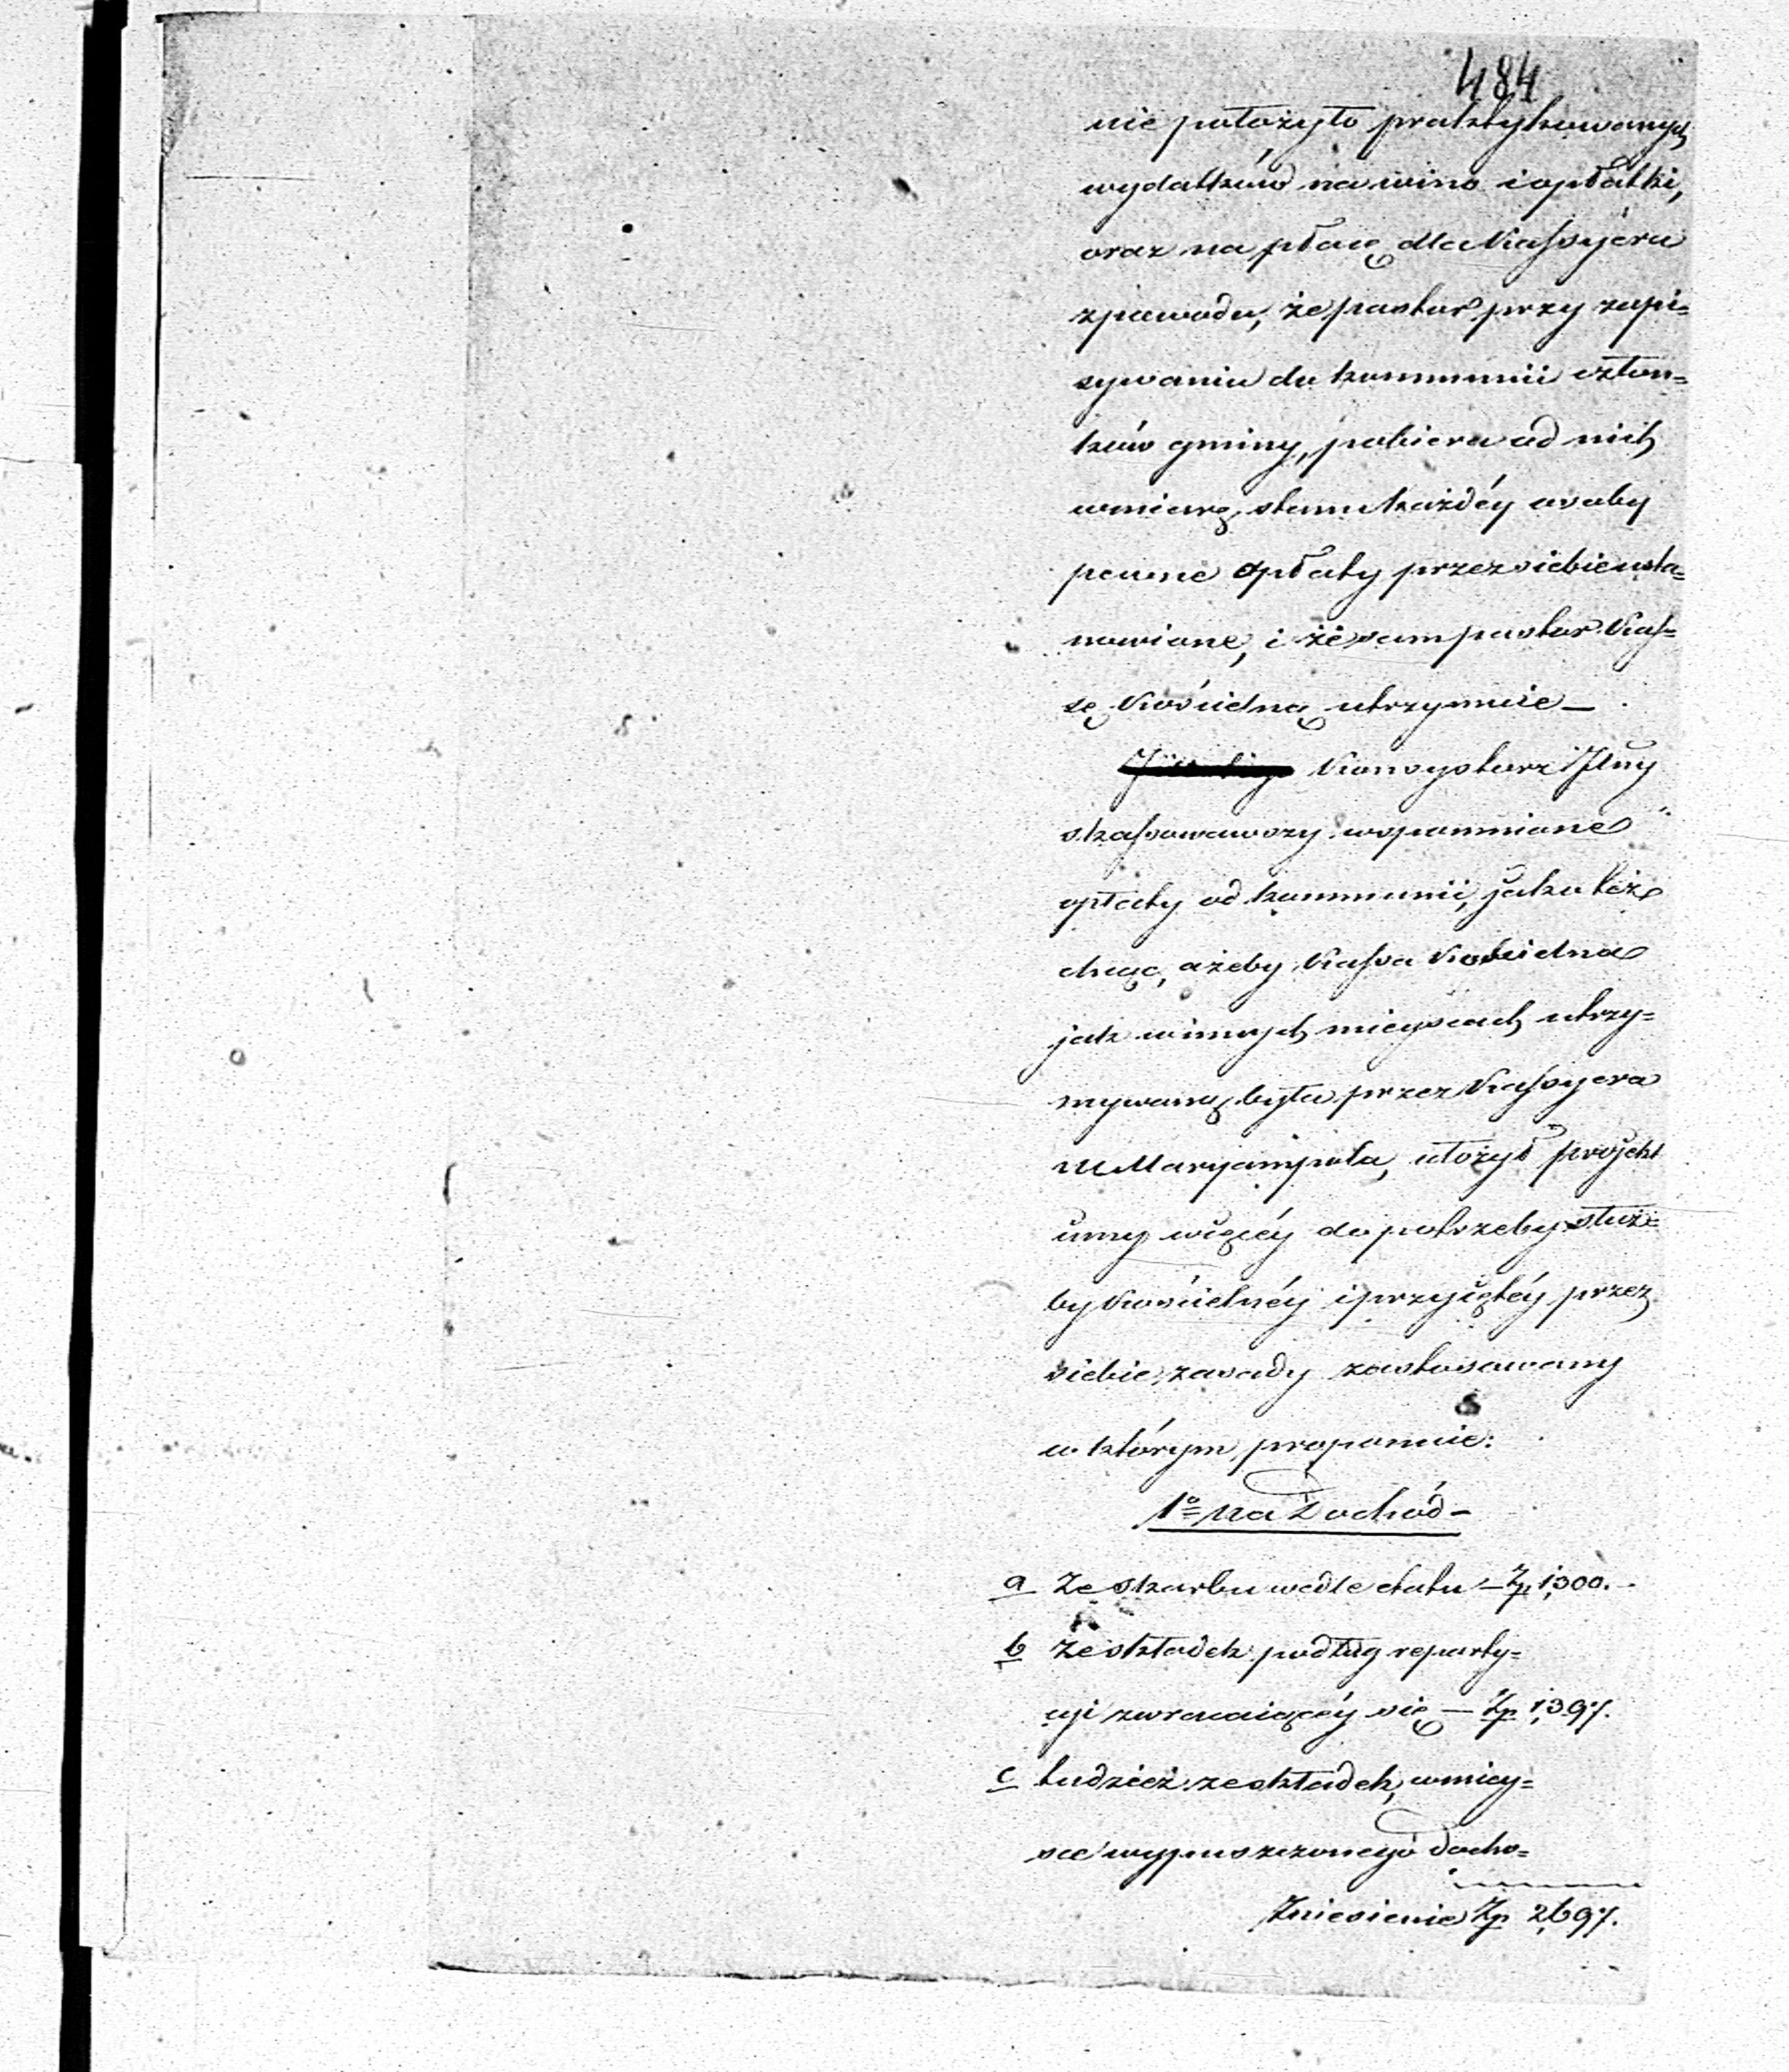 484
nie położyło praktykowanych
wydatków na wino i opłatki,
oraz na płacę dla Kassyera
z powodu, że pastor przy zapi=
sywaniu do kommunii człon=
ków gminy, pobiera od nich
w miarę stanu każdéy osoby
pewne opłaty przez siebie usta=
nowione, i że sam pastor Kas=
sę Kościelną utrzymuie —
Konsystorz Jlny
skassowawszy wspomnione
opłaty od kommunii, jako też
chcąc, ażeby Kassa Kościelna
jak w innych mieyscach utrzy=
mywaną była przez Kassyera
w Maryampolu, ułożył projekt
inny więcéy do potrzeby służ=
by Kościelnéy i przyiętéy przez
siebie zasady zastosowany
w którym proponuie:
1o na Dochód —
a Ze skarbu wedle etatu — Zp 1,300. —
b Ze składek podług reparty=
cyi zwracaiącéy się — Zp 1,397.
c tudzież ze składek, w miey=
sce wypuszczonego docho=
Zniesienie Zp 2,697.